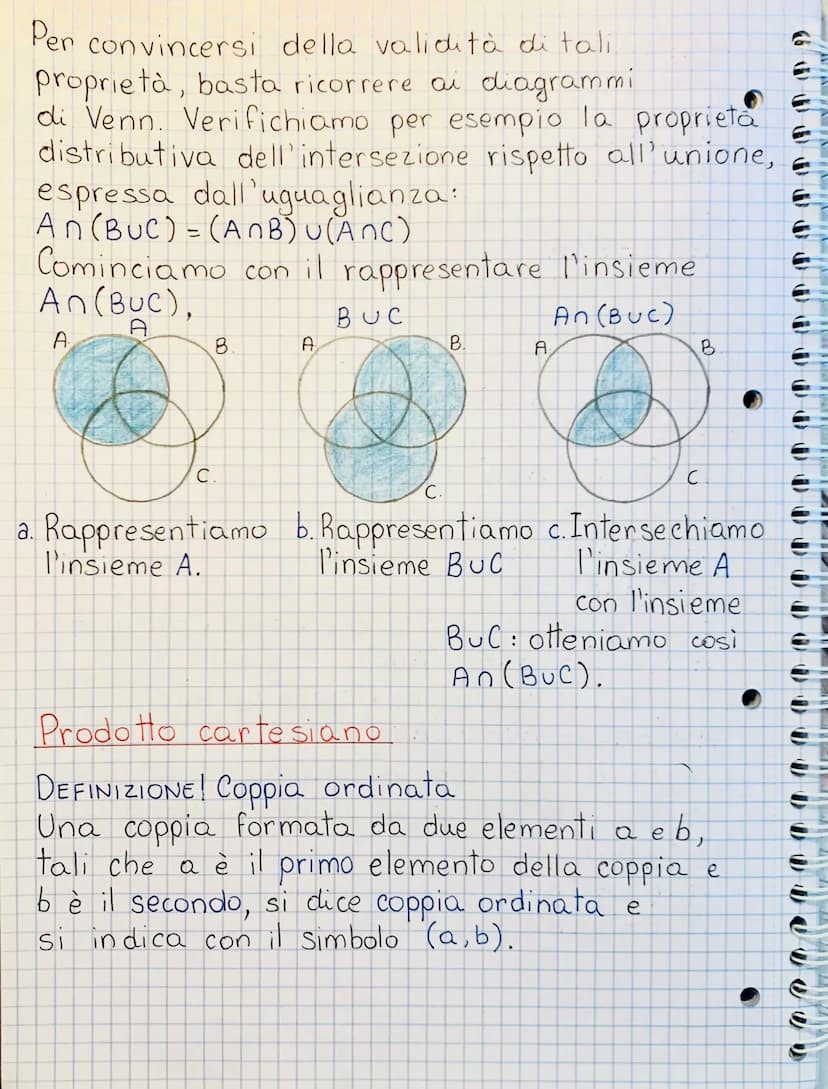 Per convincersi della validità di tali
proprietà, basta ricorrere ai diagrammi
di Venn. Verifichiamo per esempio la proprietà
distributiva dell'intersezione rispetto all'unione,
espressa dall'uguaglianza:
A∩(B∪C) = (A∩B) ∪(A∩C)
Cominciamo con il rappresentare l'insieme
A∩(B∪C),
A
A
B
C.
B ∪ C
A
B.
C.
A∩(B∪C)
A
B
C
a. Rappresentiamo
l'insieme A.
b. Rappresentiamo
l'insieme B∪C
c. Intersechiamo
l'insieme A
con l'insieme
B∪C : otteniamo così
A∩(B∪C).
Prodotto cartesiano
DEFINIZIONE! Coppia ordinata
Una coppia formata da due elementi a e b,
tali che a è il primo elemento della coppia e
b è il secondo, si dice coppia ordinata e
si indica con il simbolo (a,b).